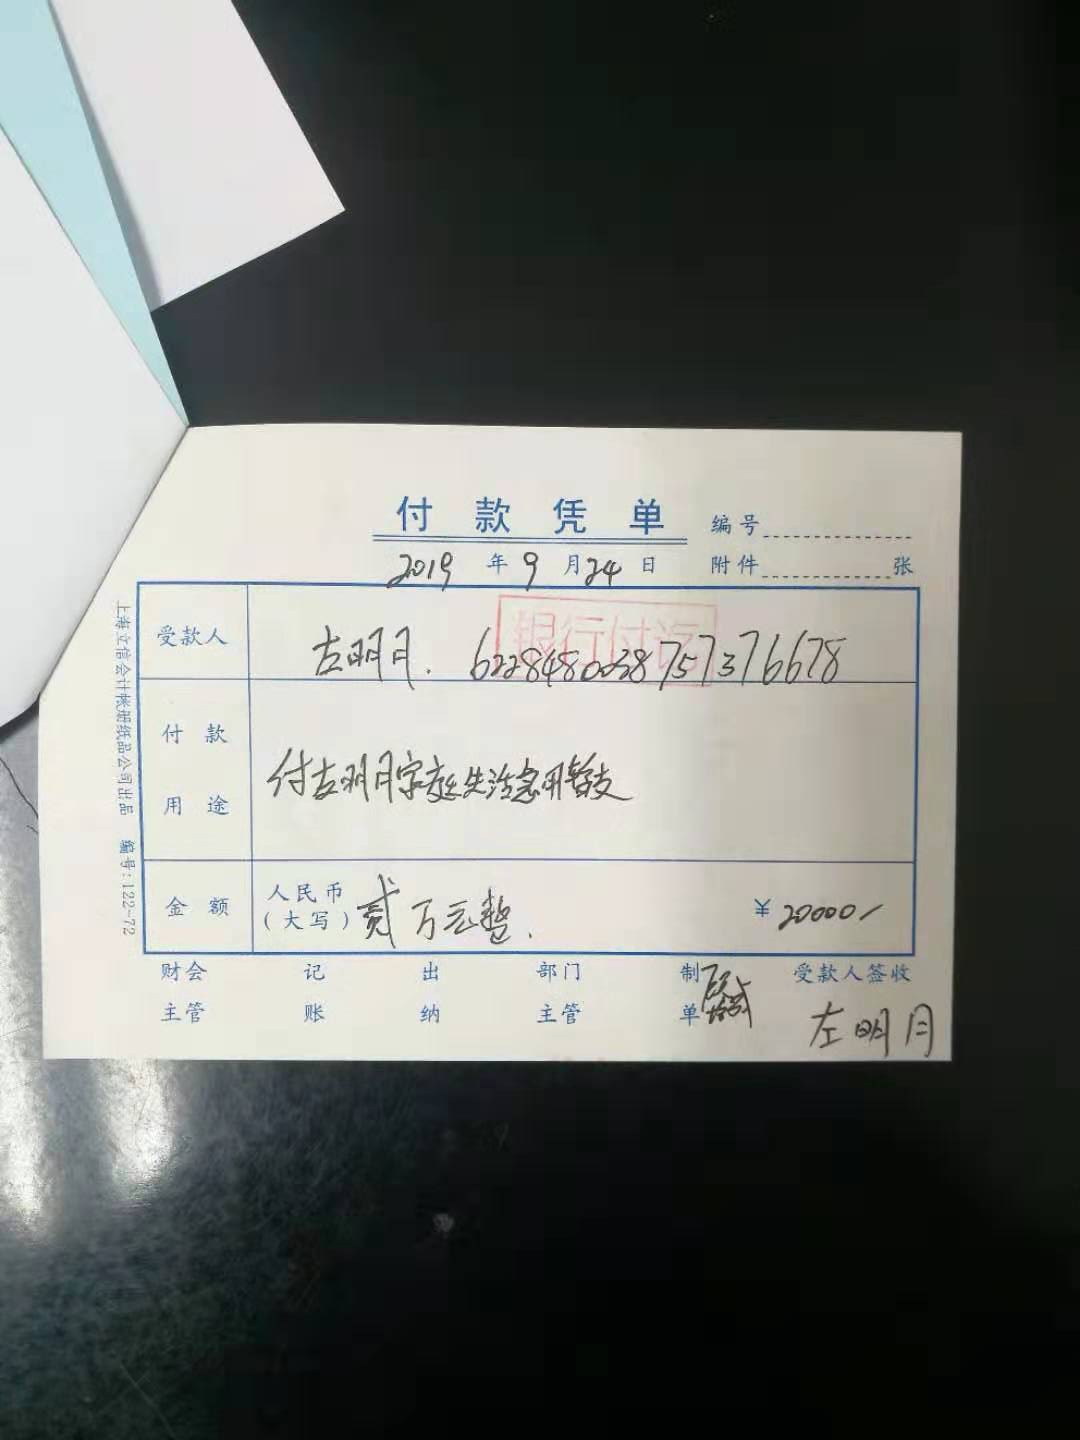 付款凭单
编号
2019年9月24日
附件 张
受款人 左明月. 6228480038757376678
银行付讫
付款用途 付左明月家庭生活急用暂支
金额 人民币(大写) 贰万元整. ¥20000/
财会主管 记账 出纳 部门主管 制单 受款人签收
左明月
上海立信会计账册纸品公司出品 编号:122-72